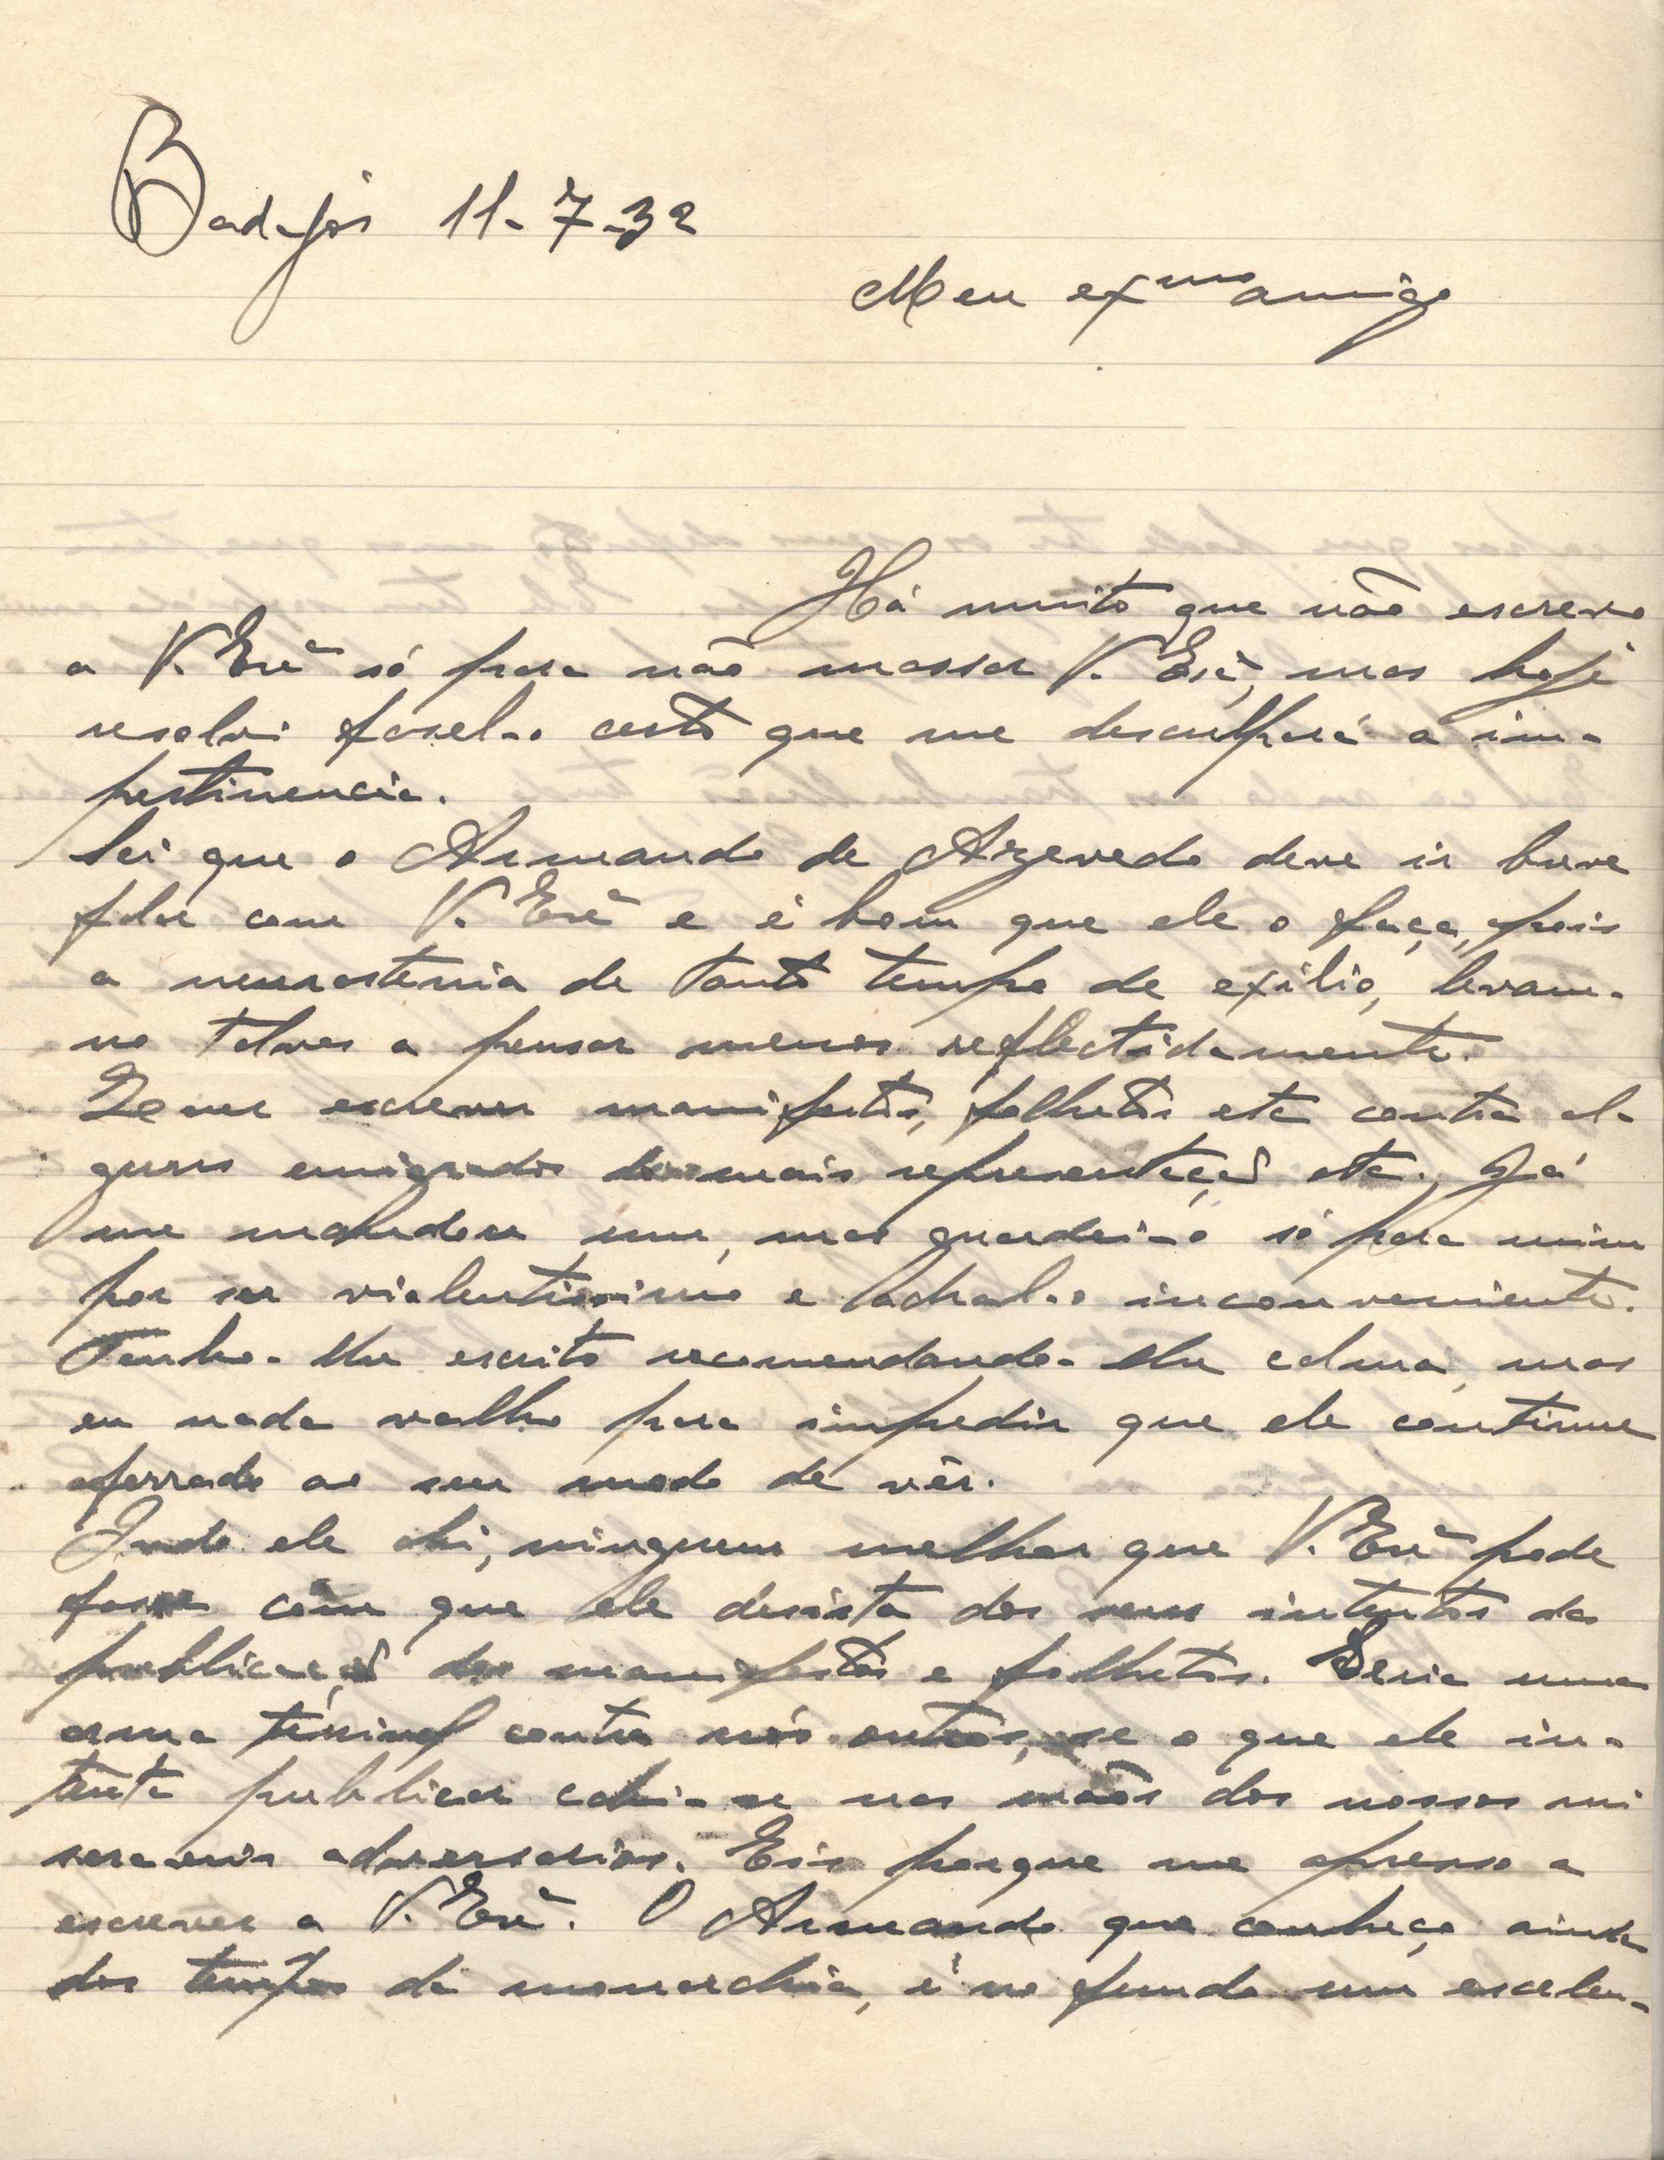 Badajós 11-7-32
Meu exmo amigo
Há muito que não escrevo
a V. Exª só para não massar V. Exª, mas hoje
resolvi fasel-o certo que me desculpará a im-
pertinencia.
Sei que o Armando de Azevedo deve ir breve
falar com V. Exª e é bom que ele o faça, pois
a neurastenia de tanto tempo de exilio, levam-
no talves a pensar menos reflectidamente.
Quer escrever manifestos, folhetos etc contra al-
guns emigrados de mais representação etc. Já
me mandou um, mas guardei-o só para mim
por ser violentissimo e achal-o inconveniente.
Tenho-lhe escrito recomendando-lhe calma, mas
eu nada valho para impedir que ele continue
aferrado ao seu modo de vêr.
Indo ele ahi, ninguem melhor que V. Exª pode
faser com que ele desista dos seus intentos da
publicação dos manifestos e folhetos. Seria uma
arma terrivel contra nós outros, se o que ele in-
tenta publicar cahi-se nas mãos dos nossos mi
seraveis adversarios. Eis porque me apresso a
escrever a V. Exª. O Armando que conheço ainda
dos tempos da monarchia, é no fundo um excelen-